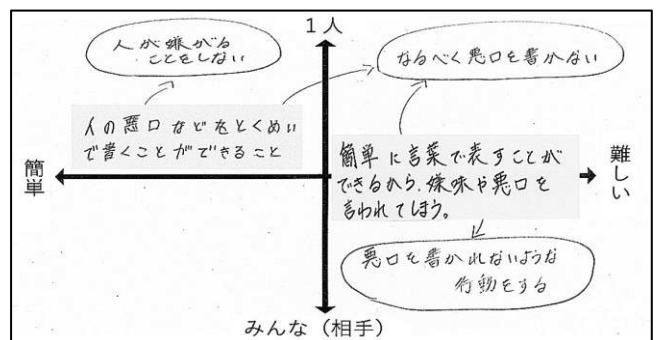 1人
人が嫌がる
ことをしない
なるべく悪口を書かない
人の悪口などをとくめい
で書くことができること
簡単に言葉で表すことが
できるから、嫌味や悪口を
言われてしまう。
簡単
難しい
悪口を書かれないような
行動をする
みんな（相手）